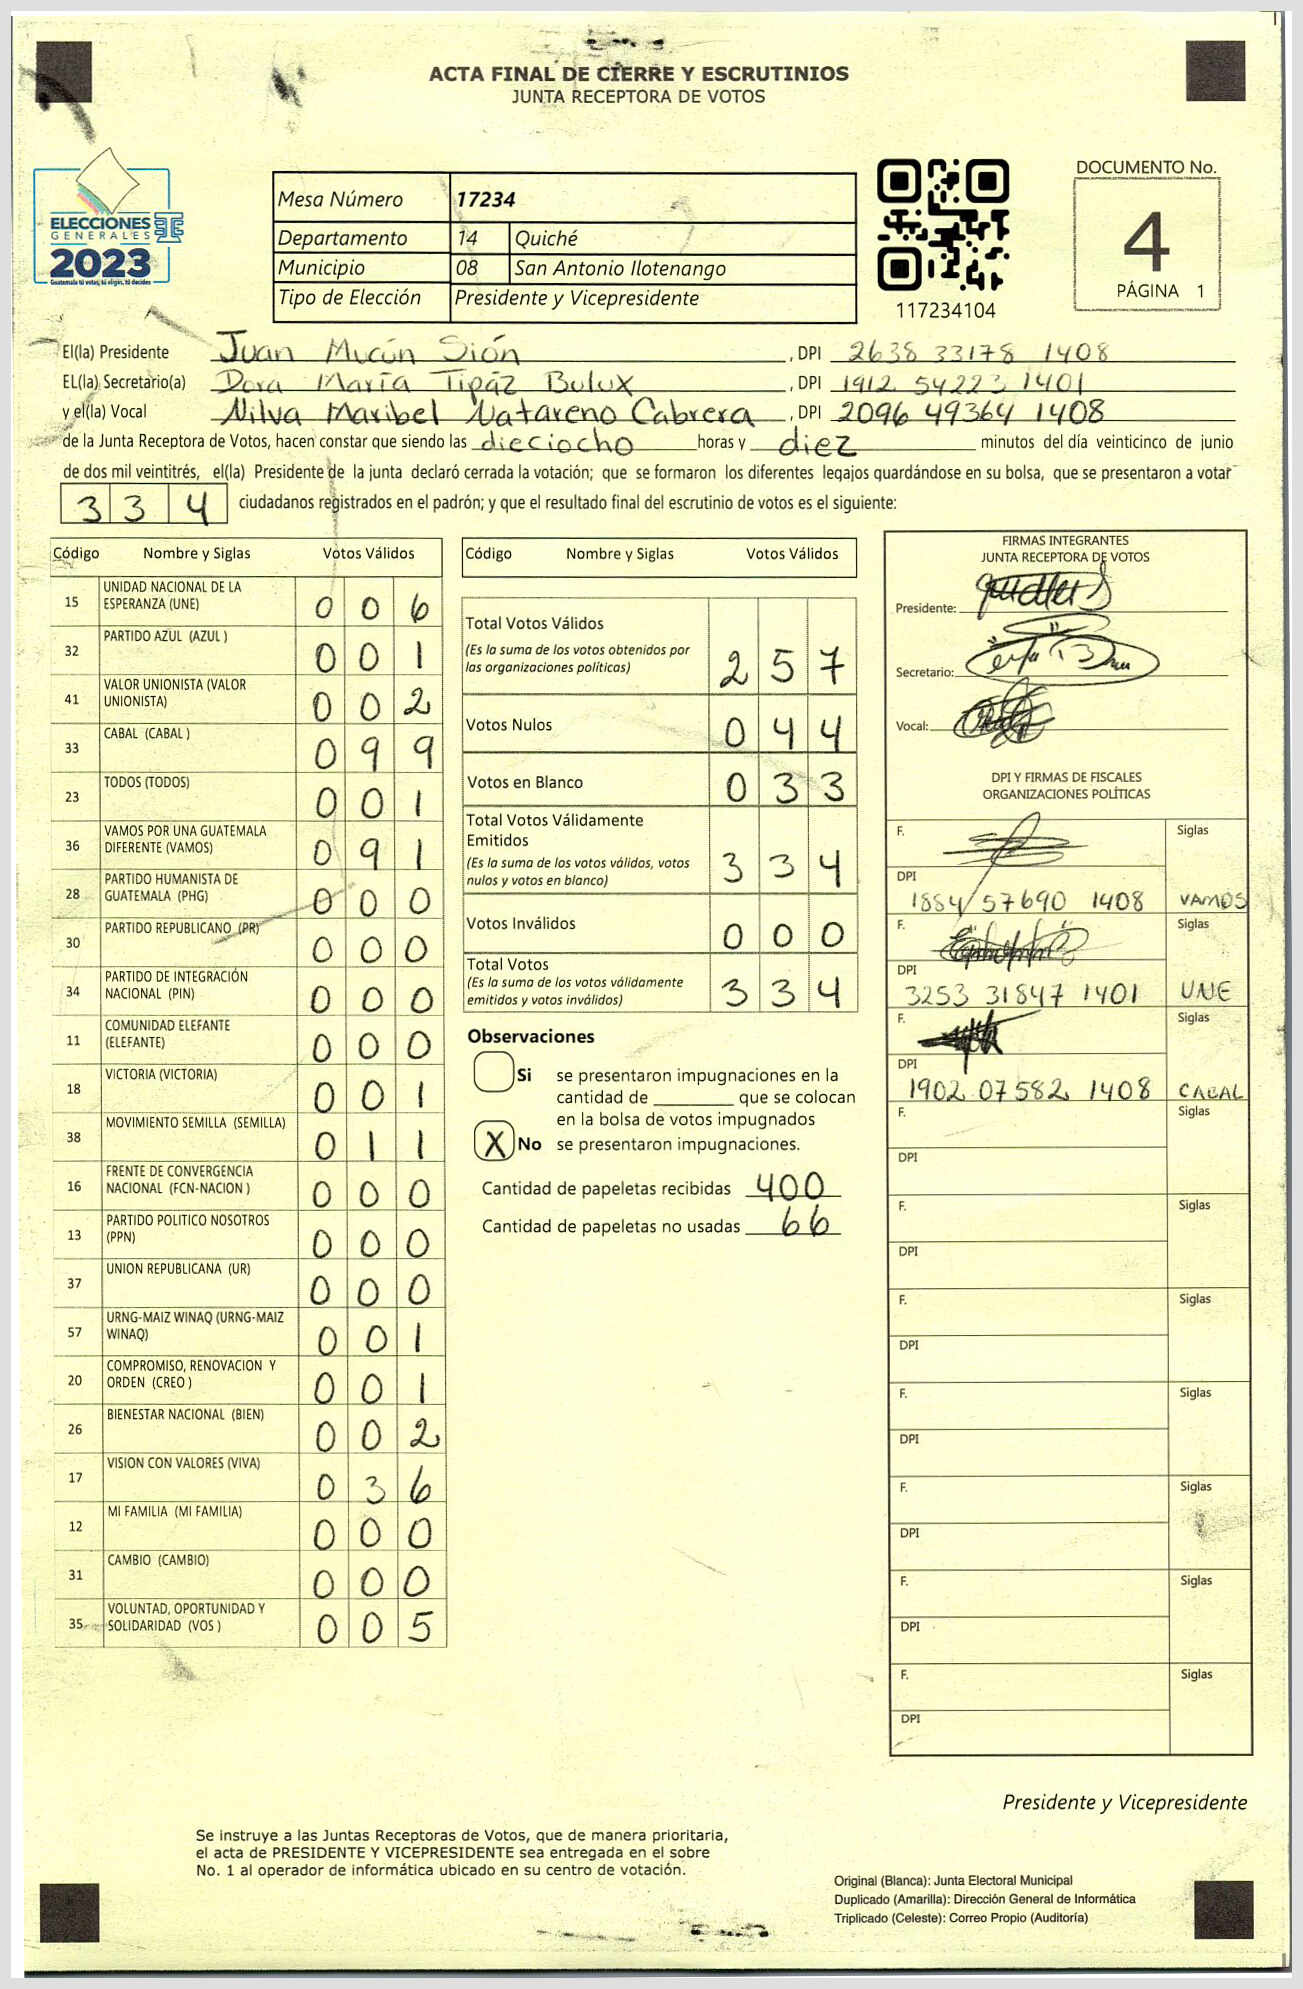 ACTA FINAL DE CIERRE Y ESCRUTINIOS
JUNTA RECEPTORA DE VOTOS
ELECCIONES
GENERALES
2023
Guatemala tú votas, tú eliges, tú decides
Mesa Número 17234
Departamento 14 Quiché
Municipio 08 San Antonio Ilotenango
Tipo de Elección Presidente y Vicepresidente
117234104
DOCUMENTO No.
4
PÁGINA 1
El(la) Presidente Juan Mucún Sión, DPI 2638 33178 1408
EL(la) Secretario(a) Dora María Tipáz Bulux, DPI 1912 54223 1401
y el(la) Vocal Nilva Maribel Natareno Cabrera, DPI 2096 49364 1408
de la Junta Receptora de Votos, hacen constar que siendo las dieciocho horas y diez minutos del día veinticinco de junio
de dos mil veintitrés, el(la) Presidente de la junta declaró cerrada la votación; que se formaron los diferentes legajos guardándose en su bolsa, que se presentaron a votar
334 ciudadanos registrados en el padrón; y que el resultado final del escrutinio de votos es el siguiente:
Código Nombre y Siglas Votos Válidos
15 UNIDAD NACIONAL DE LA ESPERANZA (UNE) 0 0 6
32 PARTIDO AZUL (AZUL ) 0 0 1
41 VALOR UNIONISTA (VALOR UNIONISTA) 0 0 2
33 CABAL (CABAL ) 0 9 9
23 TODOS (TODOS) 0 0 1
36 VAMOS POR UNA GUATEMALA DIFERENTE (VAMOS) 0 9 1
28 PARTIDO HUMANISTA DE GUATEMALA (PHG) 0 0 0
30 PARTIDO REPUBLICANO (PR) 0 0 0
34 PARTIDO DE INTEGRACIÓN NACIONAL (PIN) 0 0 0
11 COMUNIDAD ELEFANTE (ELEFANTE) 0 0 0
18 VICTORIA (VICTORIA) 0 0 1
38 MOVIMIENTO SEMILLA (SEMILLA) 0 1 1
16 FRENTE DE CONVERGENCIA NACIONAL (FCN-NACION ) 0 0 0
13 PARTIDO POLITICO NOSOTROS (PPN) 0 0 0
37 UNION REPUBLICANA (UR) 0 0 0
57 URNG-MAIZ WINAQ (URNG-MAIZ WINAQ) 0 0 1
20 COMPROMISO, RENOVACION Y ORDEN (CREO ) 0 0 1
26 BIENESTAR NACIONAL (BIEN) 0 0 2
17 VISION CON VALORES (VIVA) 0 3 6
12 MI FAMILIA (MI FAMILIA) 0 0 0
31 CAMBIO (CAMBIO) 0 0 0
35 VOLUNTAD, OPORTUNIDAD Y SOLIDARIDAD (VOS ) 0 0 5
Código Nombre y Siglas Votos Válidos
Total Votos Válidos 2 5 7
(Es la suma de los votos obtenidos por
las organizaciones políticas)
Votos Nulos 0 4 4
Votos en Blanco 0 3 3
Total Votos Válidamente
Emitidos 3 3 4
(Es la suma de los votos válidos, votos
nulos y votos en blanco)
Votos Inválidos 0 0 0
Total Votos 3 3 4
(Es la suma de los votos válidamente
emitidos y votos inválidos)
Observaciones
Si se presentaron impugnaciones en la
cantidad de ________ que se colocan
en la bolsa de votos impugnados
X No se presentaron impugnaciones.
Cantidad de papeletas recibidas 400
Cantidad de papeletas no usadas 66
FIRMAS INTEGRANTES
JUNTA RECEPTORA DE VOTOS
Presidente:
Secretario:
Vocal:
DPI Y FIRMAS DE FISCALES
ORGANIZACIONES POLÍTICAS
F. Siglas
DPI
1884 57690 1408 VAMOS
F. Siglas
DPI
3253 31847 1401 UNE
F. Siglas
DPI
1902 07582 1408 CABAL
F. Siglas
DPI
F. Siglas
DPI
F. Siglas
DPI
F. Siglas
DPI
F. Siglas
DPI
F. Siglas
DPI
F. Siglas
DPI
Presidente y Vicepresidente
Se instruye a las Juntas Receptoras de Votos, que de manera prioritaria,
el acta de PRESIDENTE Y VICEPRESIDENTE sea entregada en el sobre
No. 1 al operador de informática ubicado en su centro de votación.
Original (Blanca): Junta Electoral Municipal
Duplicado (Amarilla): Dirección General de Informática
Triplicado (Celeste): Correo Propio (Auditoría)